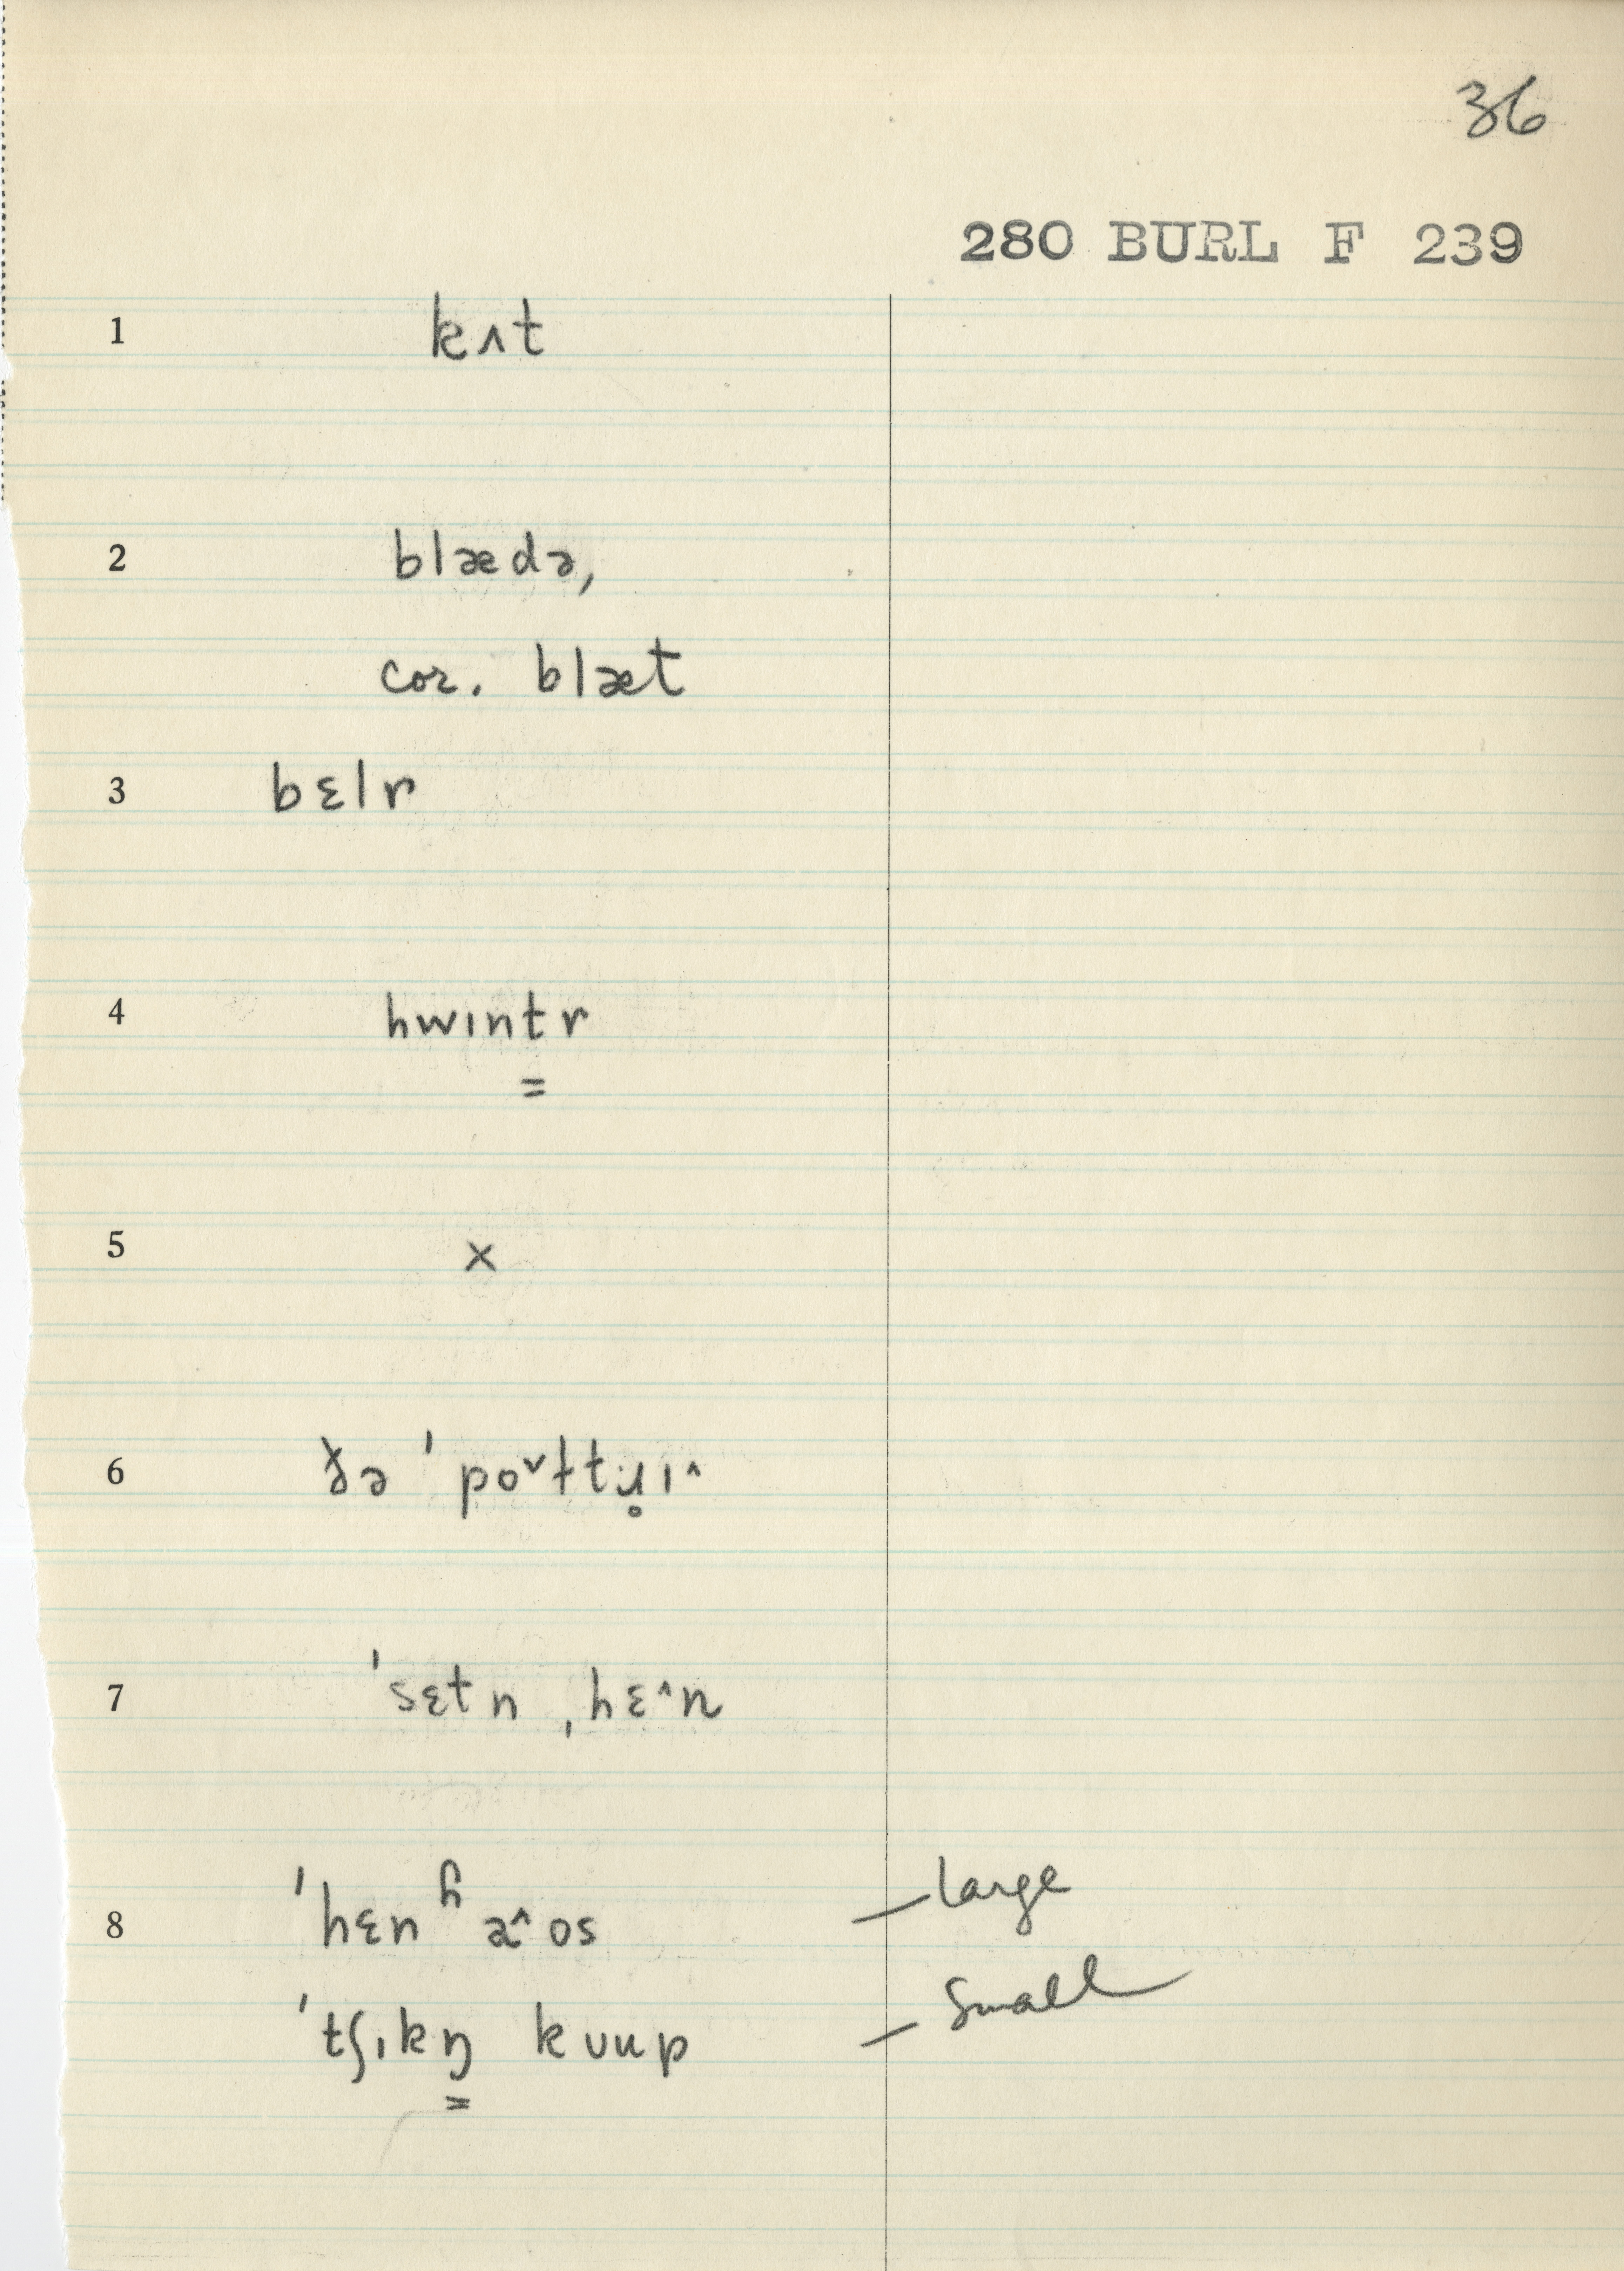 36
280 BURL F 239
1 kʌt
2 blædə,
cor. blæt
3 bɛlr
4 hwɪntr
=
5 x
6 ðə ˈpoˇɫtɹ̥ɪ^
7 ˈsɛtn ˌhɛ^n
8 ˈhɛn ɦ æ^ os — large
ˈtʃɪkŋ kuup — small
=